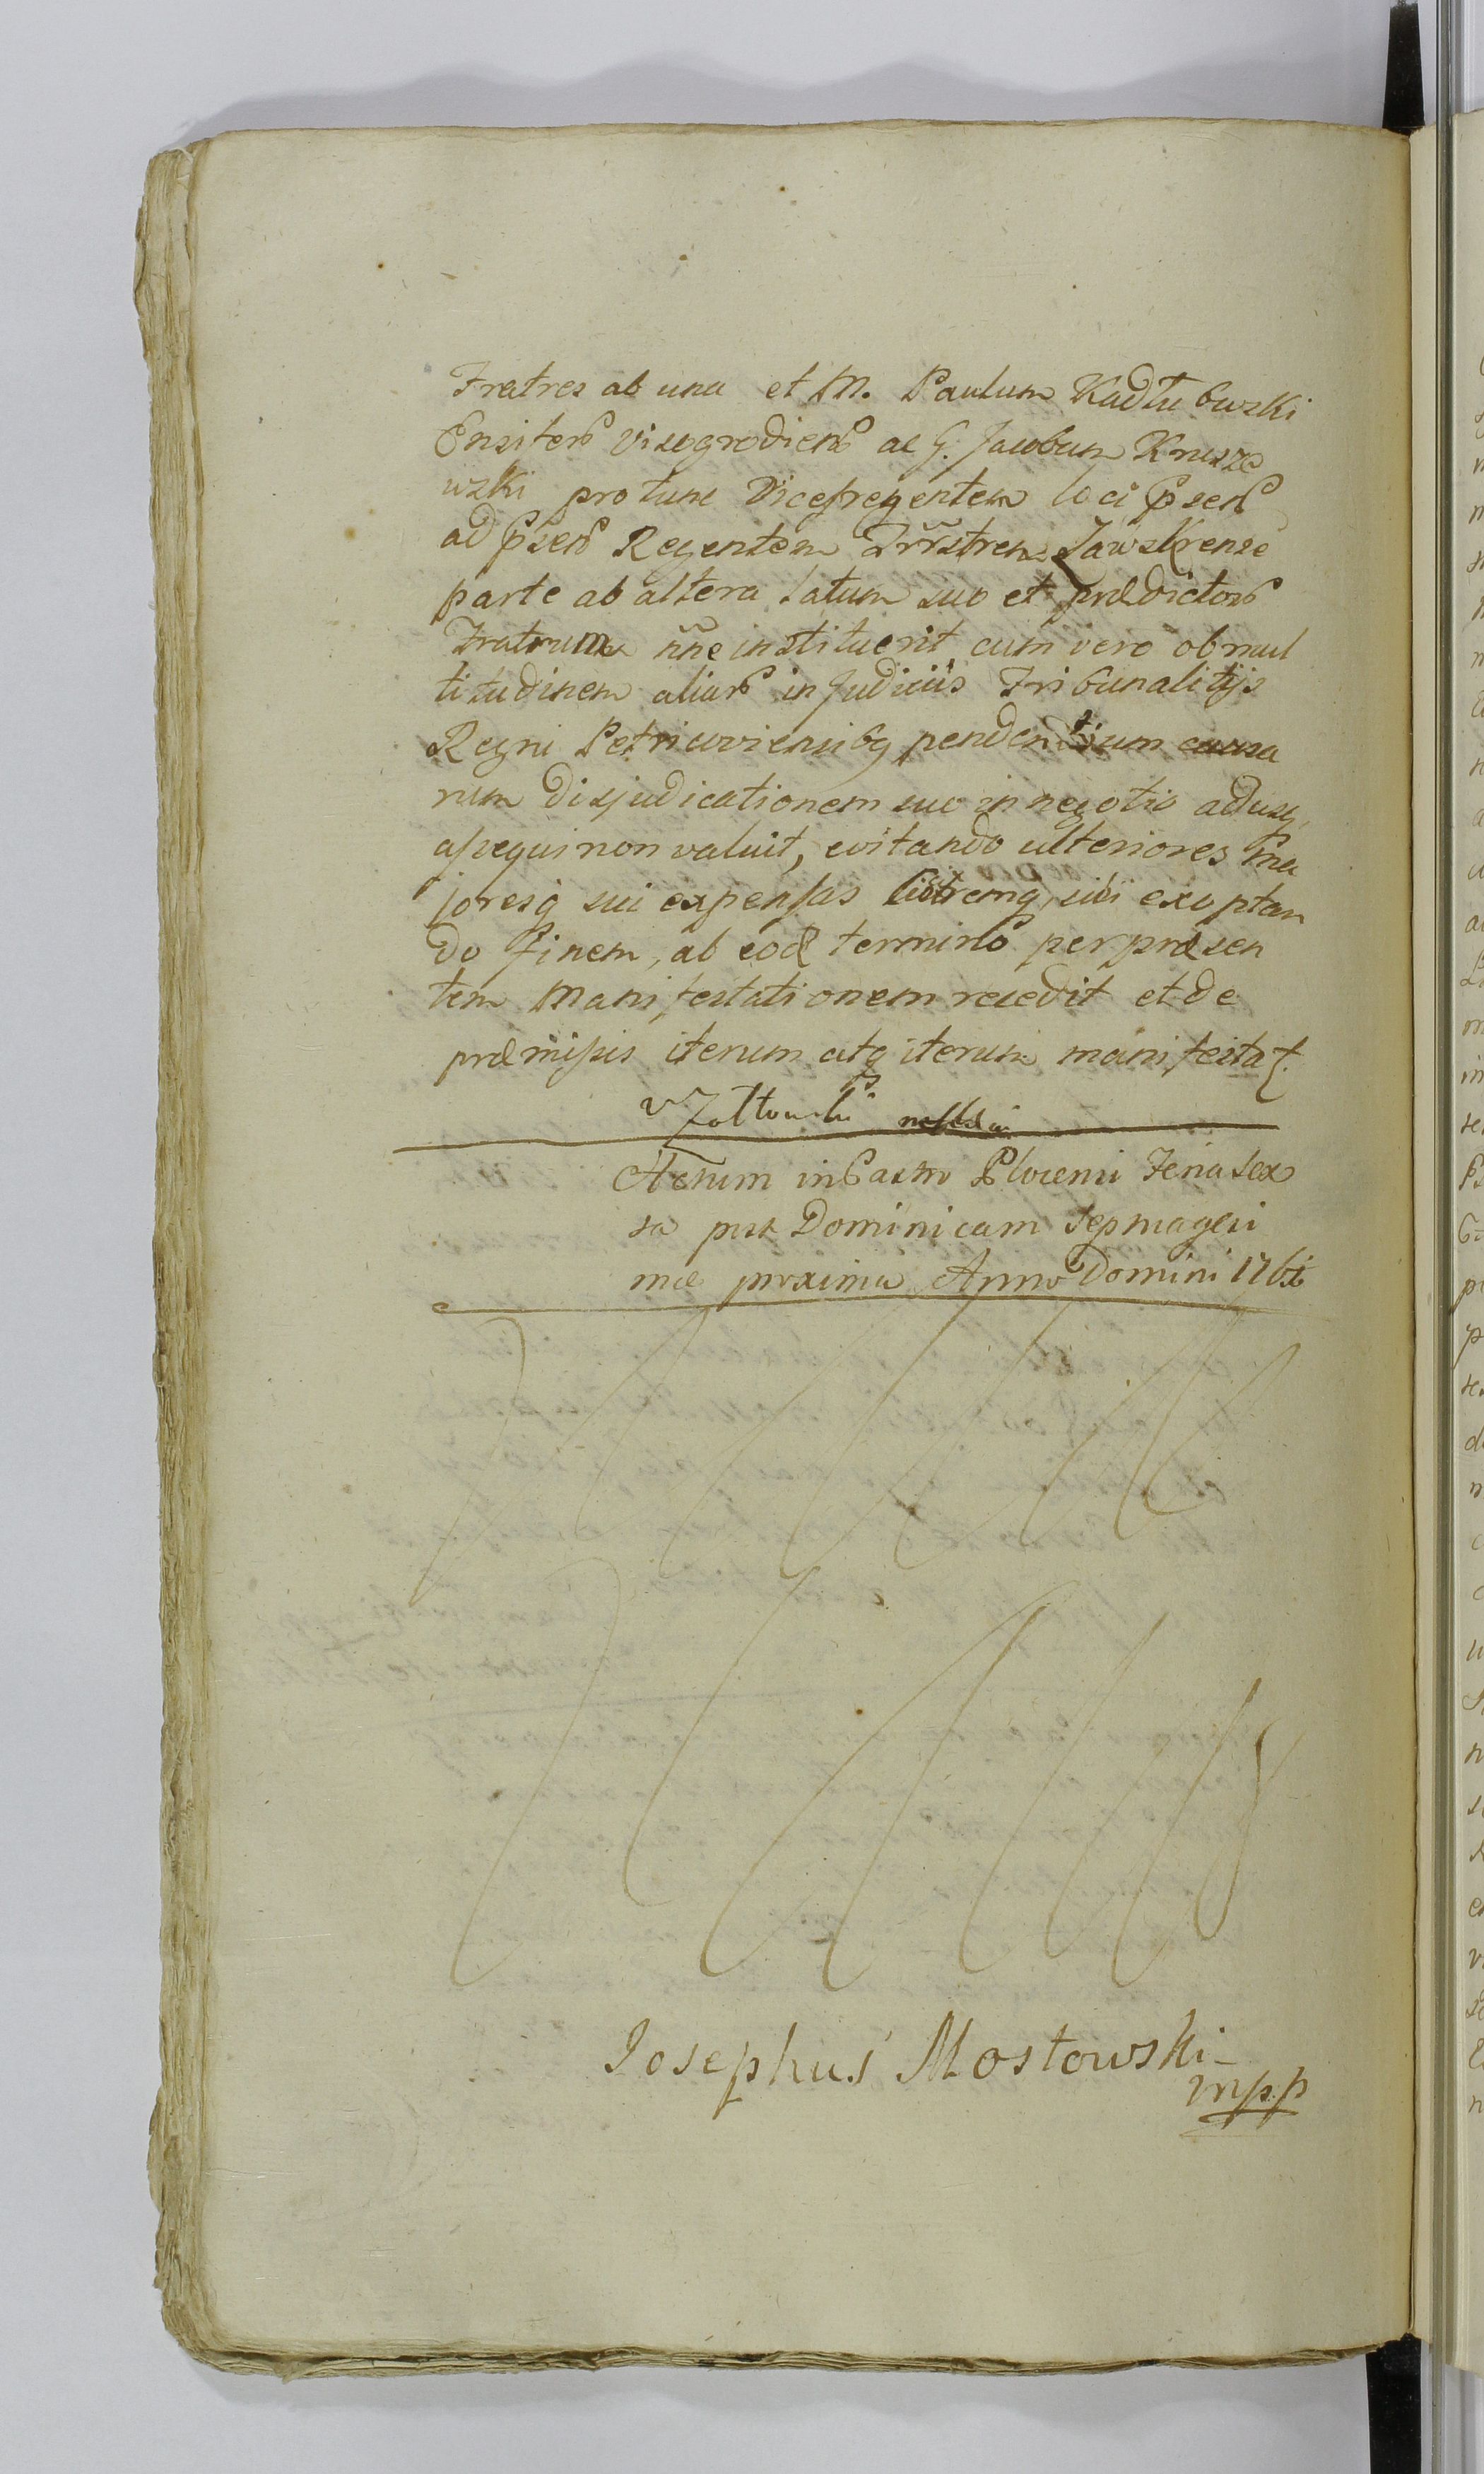 Fratres ab una et M. Paulum Kadłubwski
Ensiter Visogrodien ac G. Jacobum Krusze
wski protunc Viceregentem loci Psen
ad psen Regentem Trrstren Zawskrense
parte ab altera latum suo et prædictor
Fratrum nñe instituerit cum vero ob mul
titudinem aliar in Judiciis Tribunalitijs
Regni Petricoviensibq pendentium causa
rum disjudicationem suo in negotio adusq,
assequi non valuit, evitando ulteriores ma
joresq sui expensas litiremq, sibi exoptan
do finem, ab eod termino per præsen
tem Manifestationem recedit et de
præmissis iterum atq iterum manifestat.
V Zołtowski
Actum in Castro Plocensi Feria sex
ta post Dominicam Septuagesi
mæ proxima Anno Domini 176
Josephus Mostowski
mpp